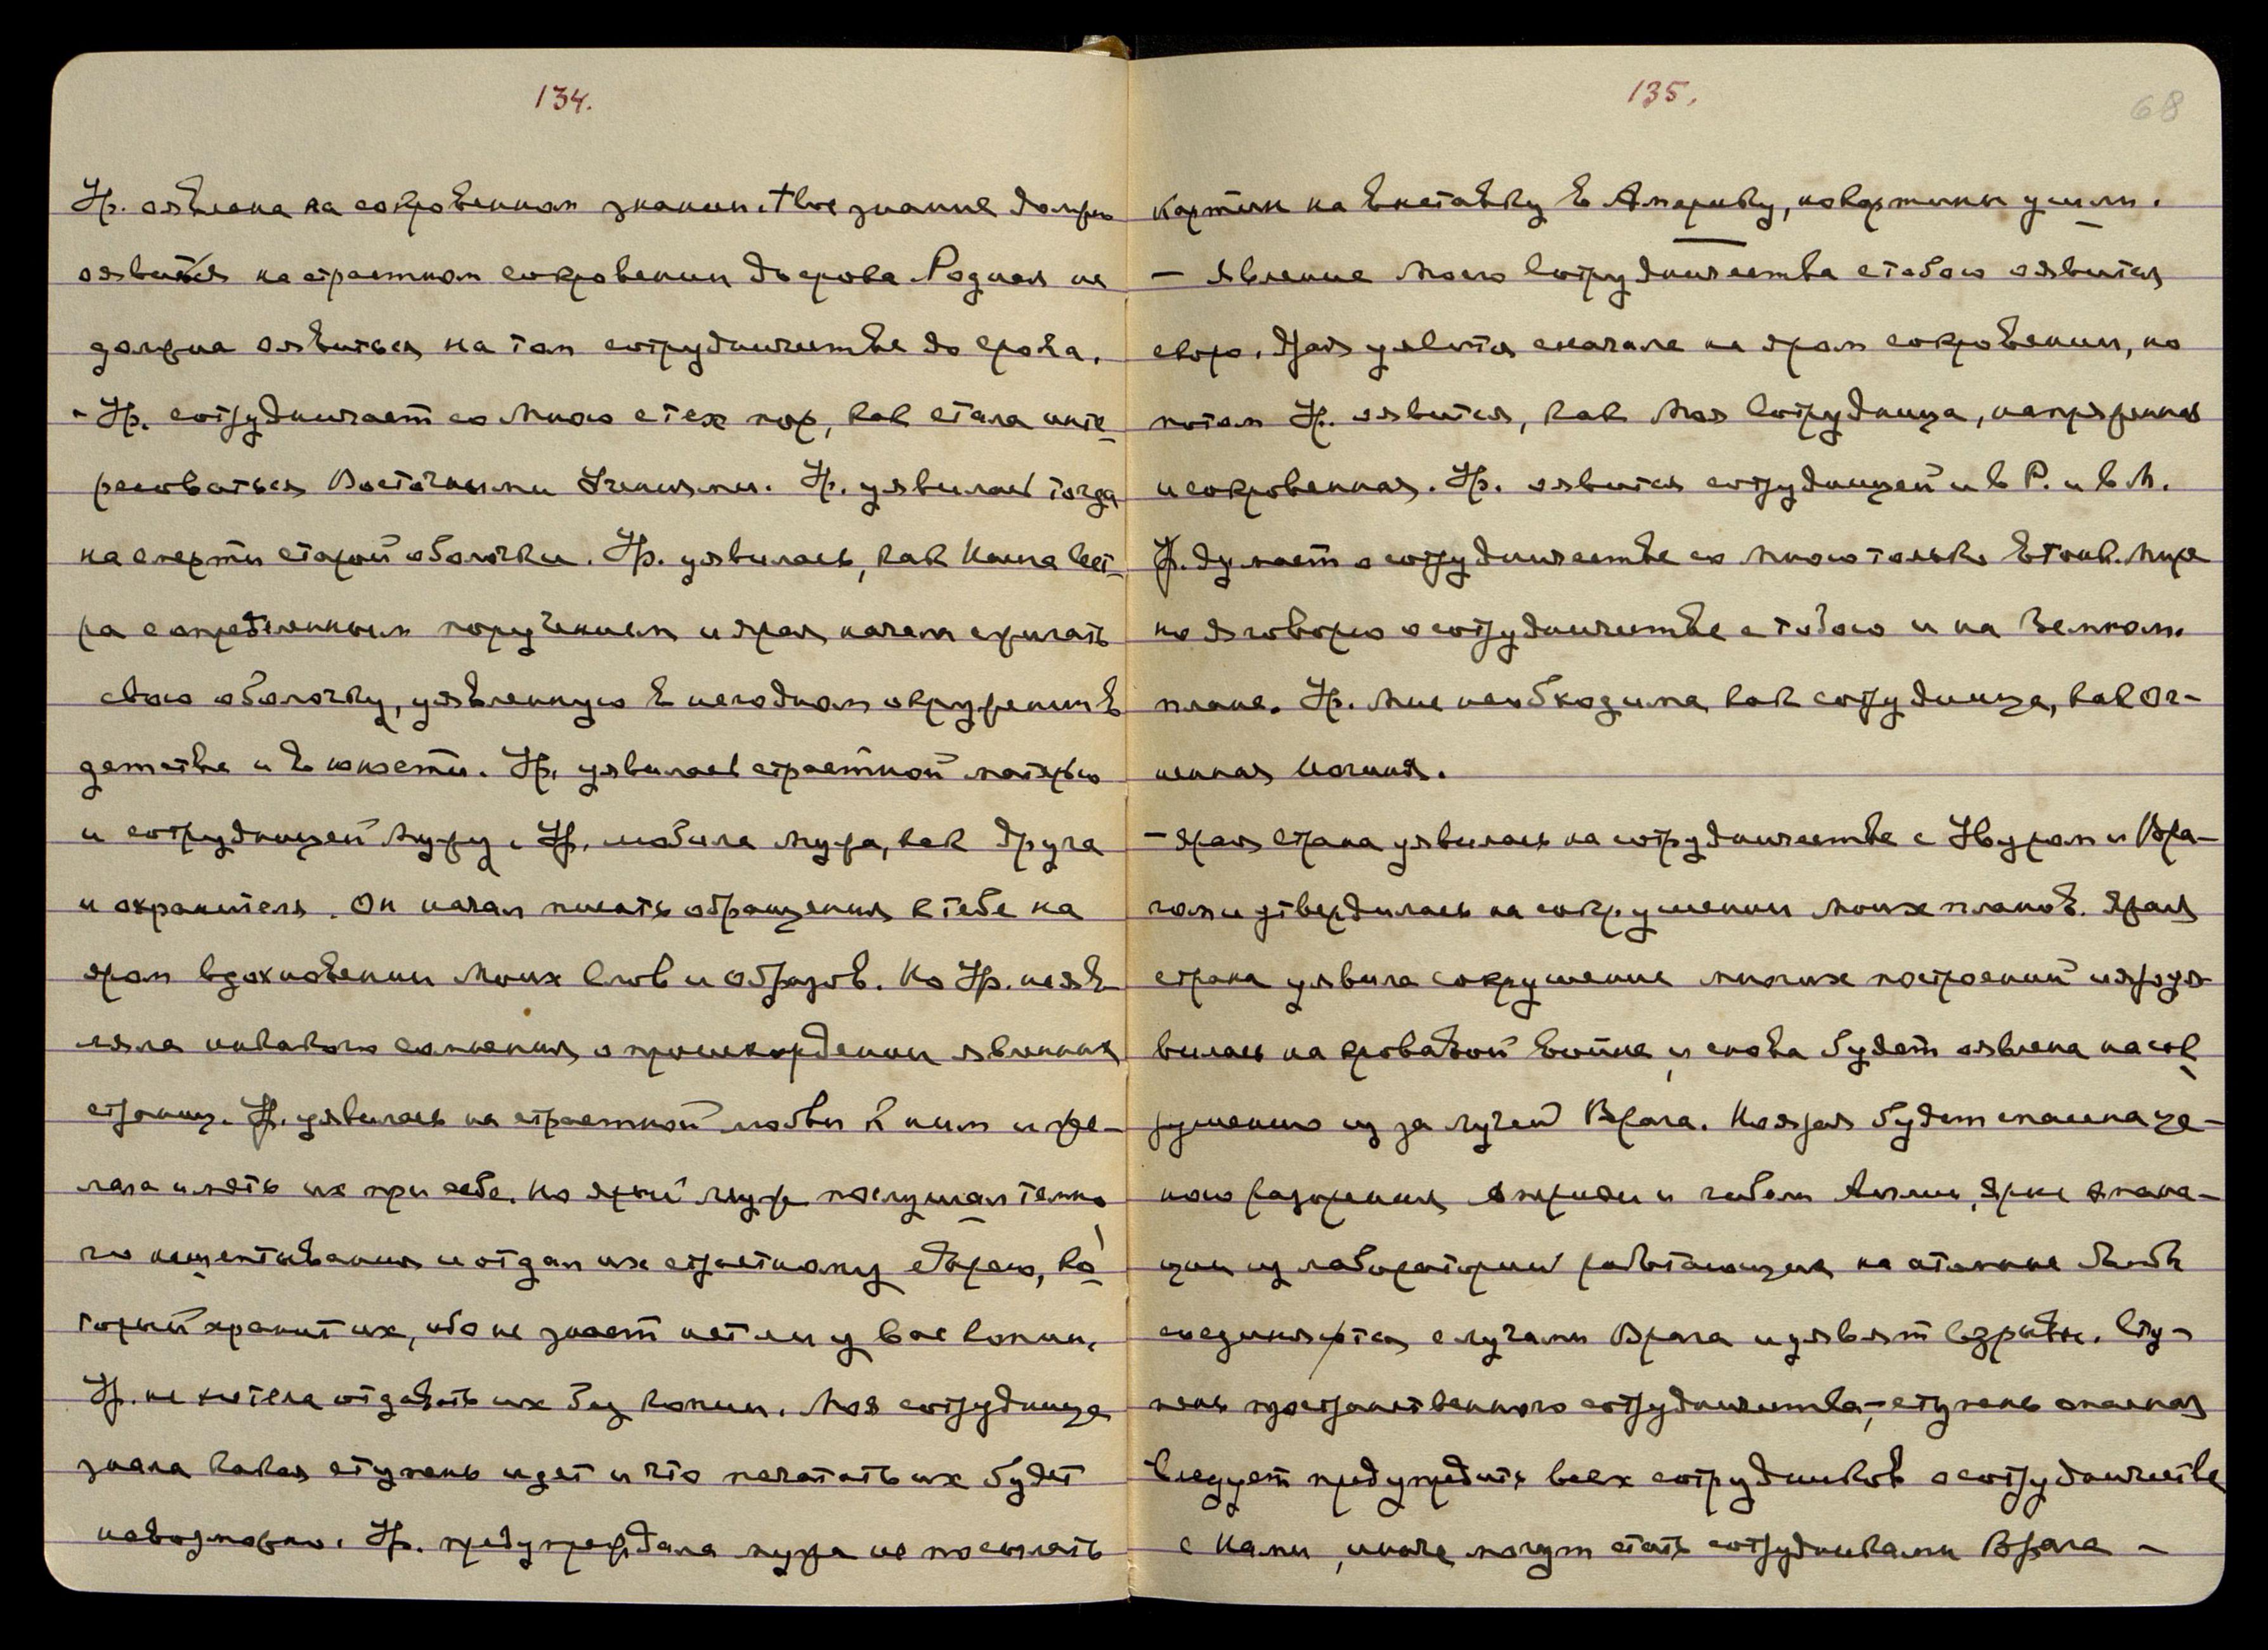 134.
Ур. оявлена на сокровенном знании. Твое знание должно
оявиться на страстном сокровении до срока Родная не
должна оявиться на том сотрудничестве до срока.
- Ур. сотрудничает со Мною с тех пор, как стала инте-
ресоваться Восточными Учениями. Ур. уявилась тогда
на смерти старой оболочки. Ур. уявилась, как Наша Сест-
ра с определенным поручением и ярая начала сжигать
свою оболочку, уявленную в негодном окружении в
детстве и в юности. Ур. уявилась страстной матерью
и сотрудницей мужу. Ур. любила мужа, как друга
и охранителя. Он начал писать обращения к тебе на
яром вдохновении Моих Слов и Образов. Но Ур. не яв-
ляла никакого сомнения о происхождении явления
страниц. Ур. уявилась на страстной любви к ним и же-
лала иметь их при себе. Но ярый муж послушал темно
го нашептывания и отдал их страстному еврею, ко-
торый хранит их, ибо не знает нет ли у вас копии.
Ур. не хотела отдавать их без копии. Моя сотрудница
знала какая ступень идет и что печатать их будет
невозможно. Ур. предупреждала мужа не посылать
135.
68
картин на выставку в Америку, но картины ушли.
- Явление Моего Сотрудничества с тобою оявится
скоро. Ярая уявится сначала на яром сокровении, но
потом Ур. оявится, как Моя Сотрудница, напряженная
и сокровенная. Ур. оявится сотрудницей и в Р. и в М.
Ур. думает о сотрудничестве со Мною только в Тонк. Мире
но Я говорю о сотрудничестве с тобою и на Земном
плане. Ур. Мне необходима как сотрудница, как Ог-
ненная Иогиня.
- Ярая страна уявилась на сотрудничестве с Увразом и Вра-
гом и утвердилась на сокрушении Моих планов. Ярая
страна уявила сокрушение многих построений и яро уя-
вилась на кровавой войне и снова будет оявлена на сок
рушению из за лучей Врага. Но ярая будет спасена це-
ною разорения Америки и гибели Англии, Яркие эмана-
ции из лабораторий работающих на атомные бомбы
соединяются с лучами Врага и уявят взрывы. Сту-
пень пространственного сотрудничества, - ступень опасная
Следует предупредить всех сотрудников о сотрудничестве
с Нами, иначе могут стать сотрудниками Врага -